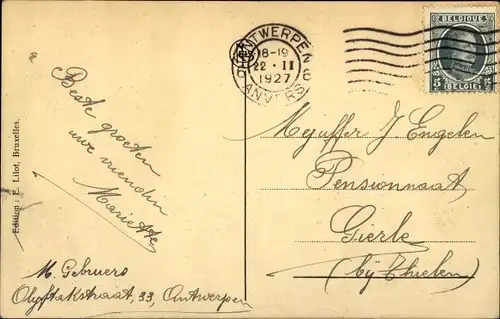 ANTWERPEN 6
18-19
22 · II
1927
ANVERS
BELGIQUE
5
BELGIË
Beste groeten
uwe vriendin
Mariette
M. Gebruers
Olyftakstraat, 33, Antwerpen
Mejuffer J Engelen
Pensionnaat
Gierle
(bij Thielen)
Edition : E. Lilot, Bruxelles.